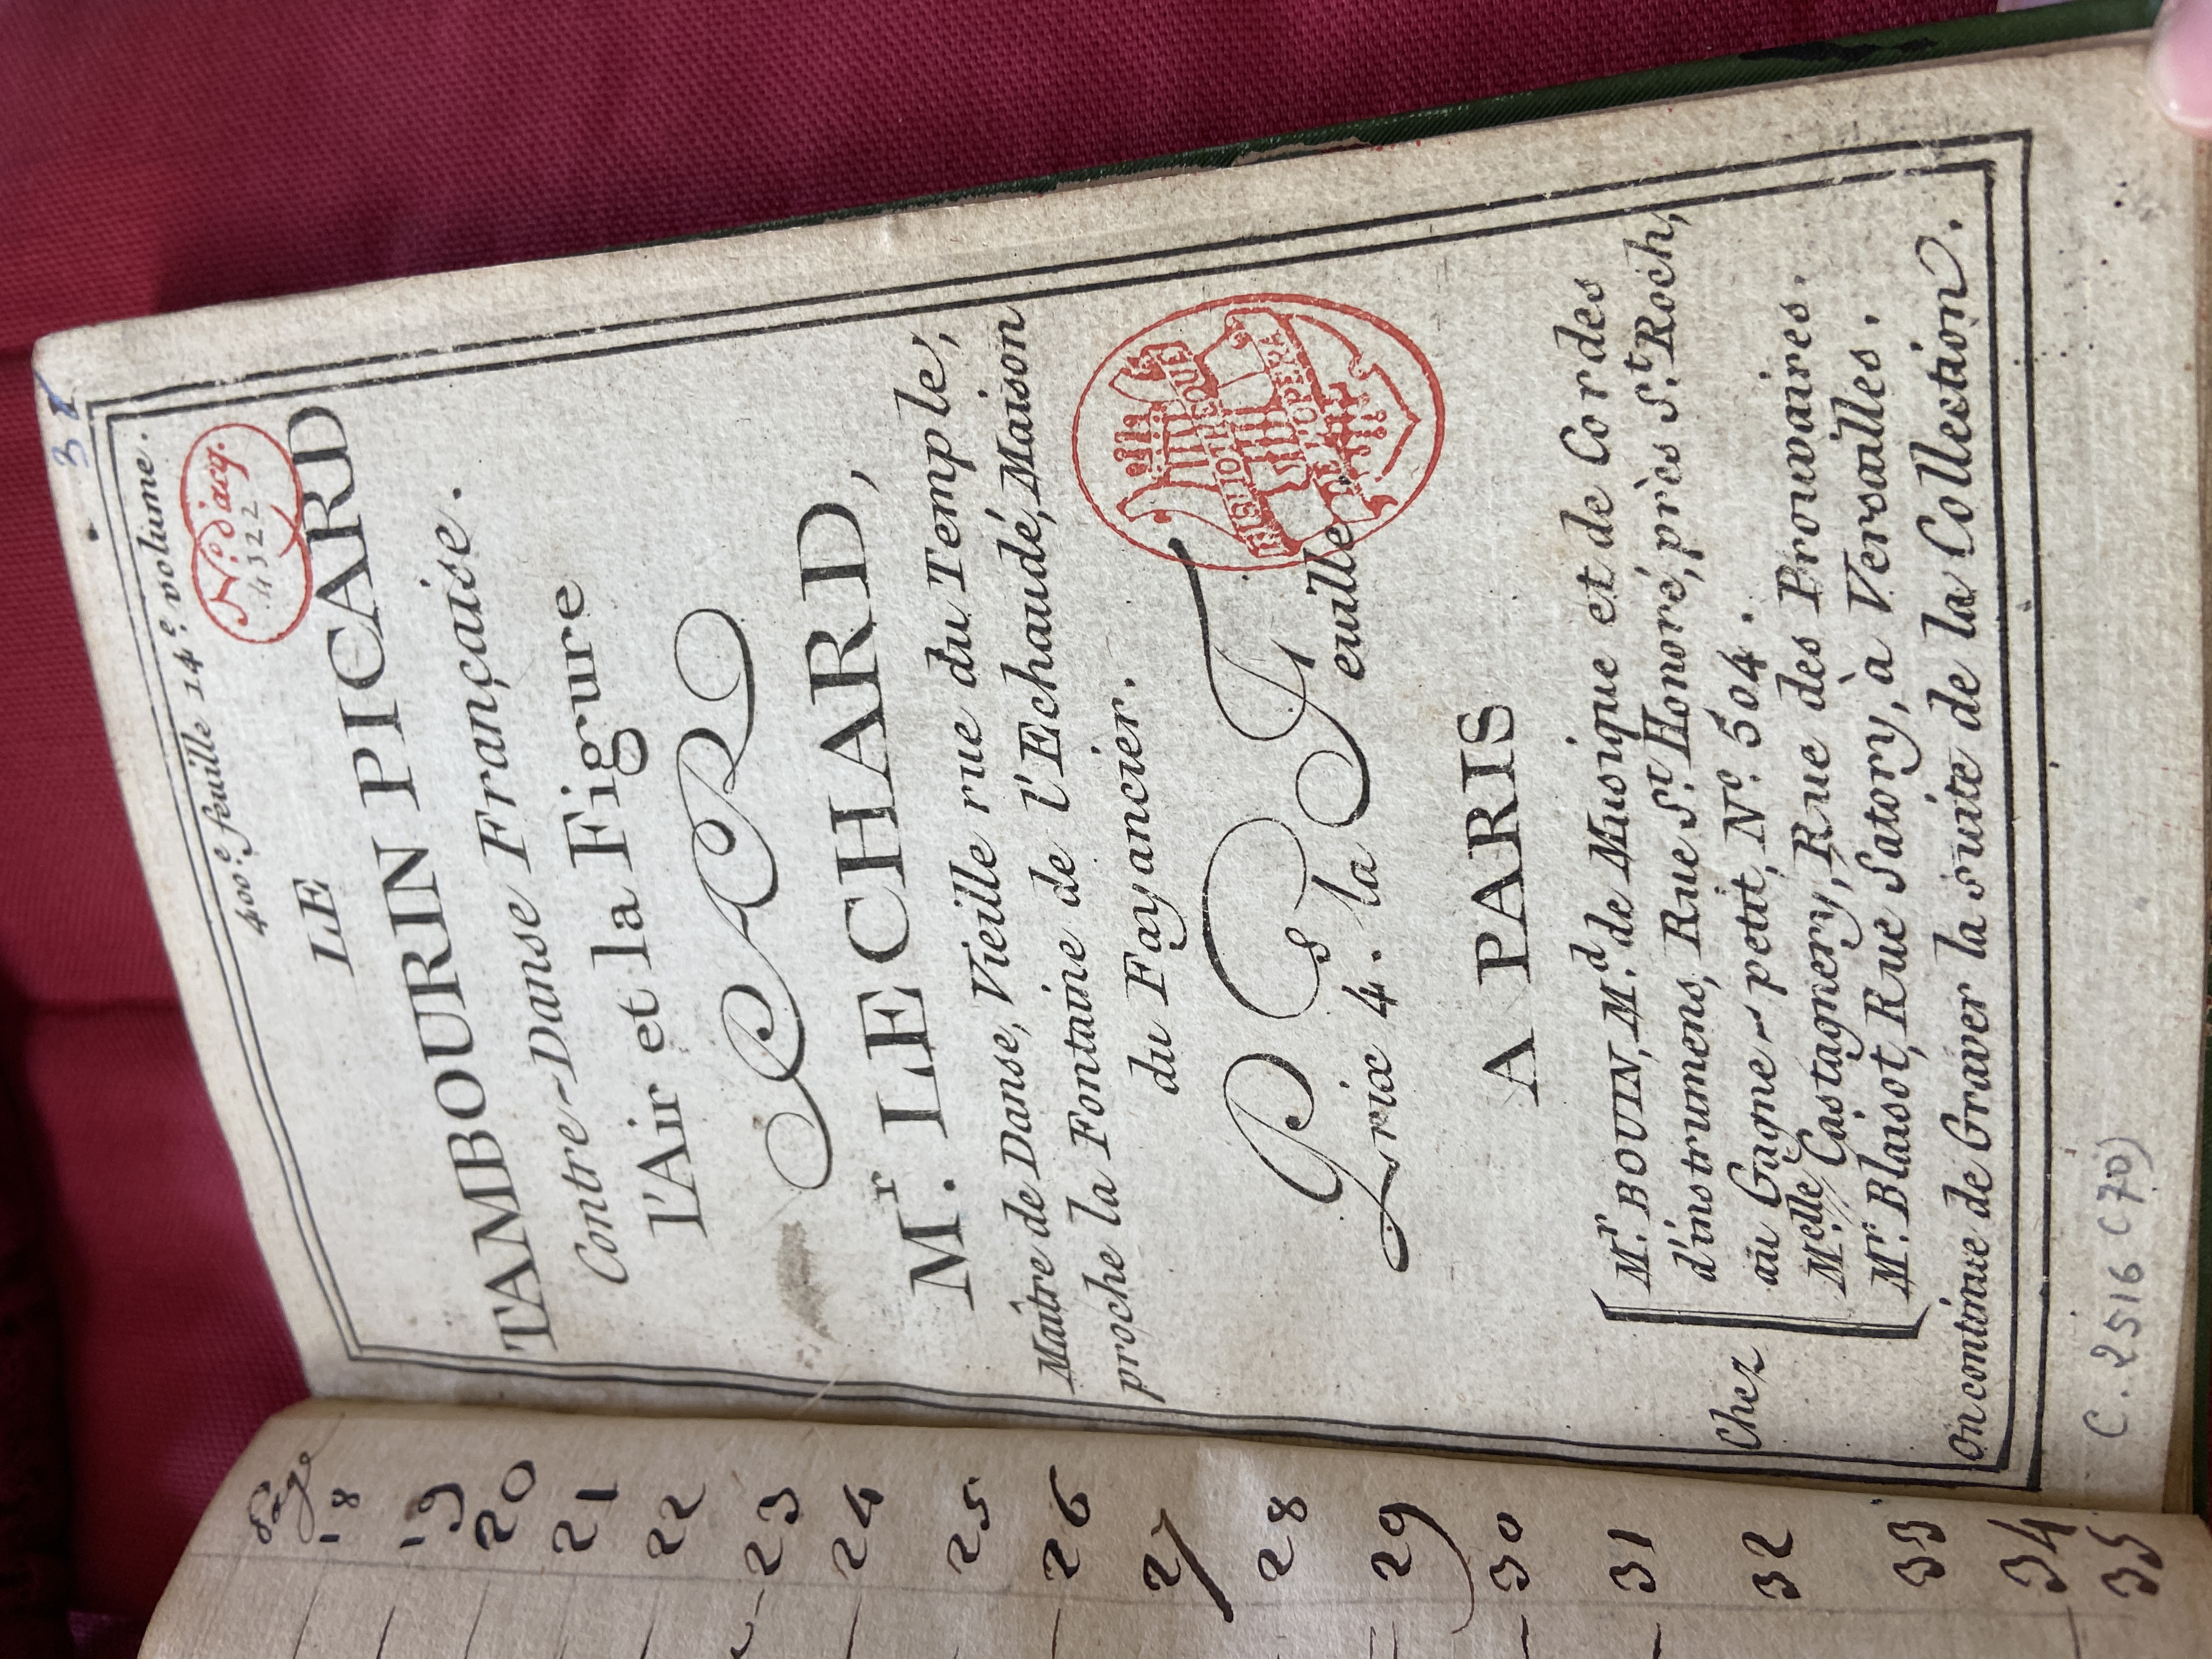 Page
18
19
20
21
22
23
24
25
26
27
28
29
30
31
32
33
34
35
400.e feuille 14.e volume.
N.o d'acq.
4322
LE
TAMBOURIN PICARD
Contre-Danse Française.
l'Air et la Figure
M.r LE CHARD,
Maitre de Danse, Vieille rue du Temple,
proche la Fontaine de l'Echaudé, Maison
du Fayancier.
Prix 4. s la Feuille
BIBLIOTHEQUE
DE L'OPERA
A PARIS
Chez
M.r BOUIN, M.d de Musique et de Cordes
d'instrumens, Rue S.t Honoré, près S.t Roch,
au Gagne-petit, N.o 504.
M.elle Castagnery, Rue des Prouvaires.
M.r Blaisot, Rue Satory, à Versailles.
On continue de Graver la suite de la Collection.
C. 2516 (70)